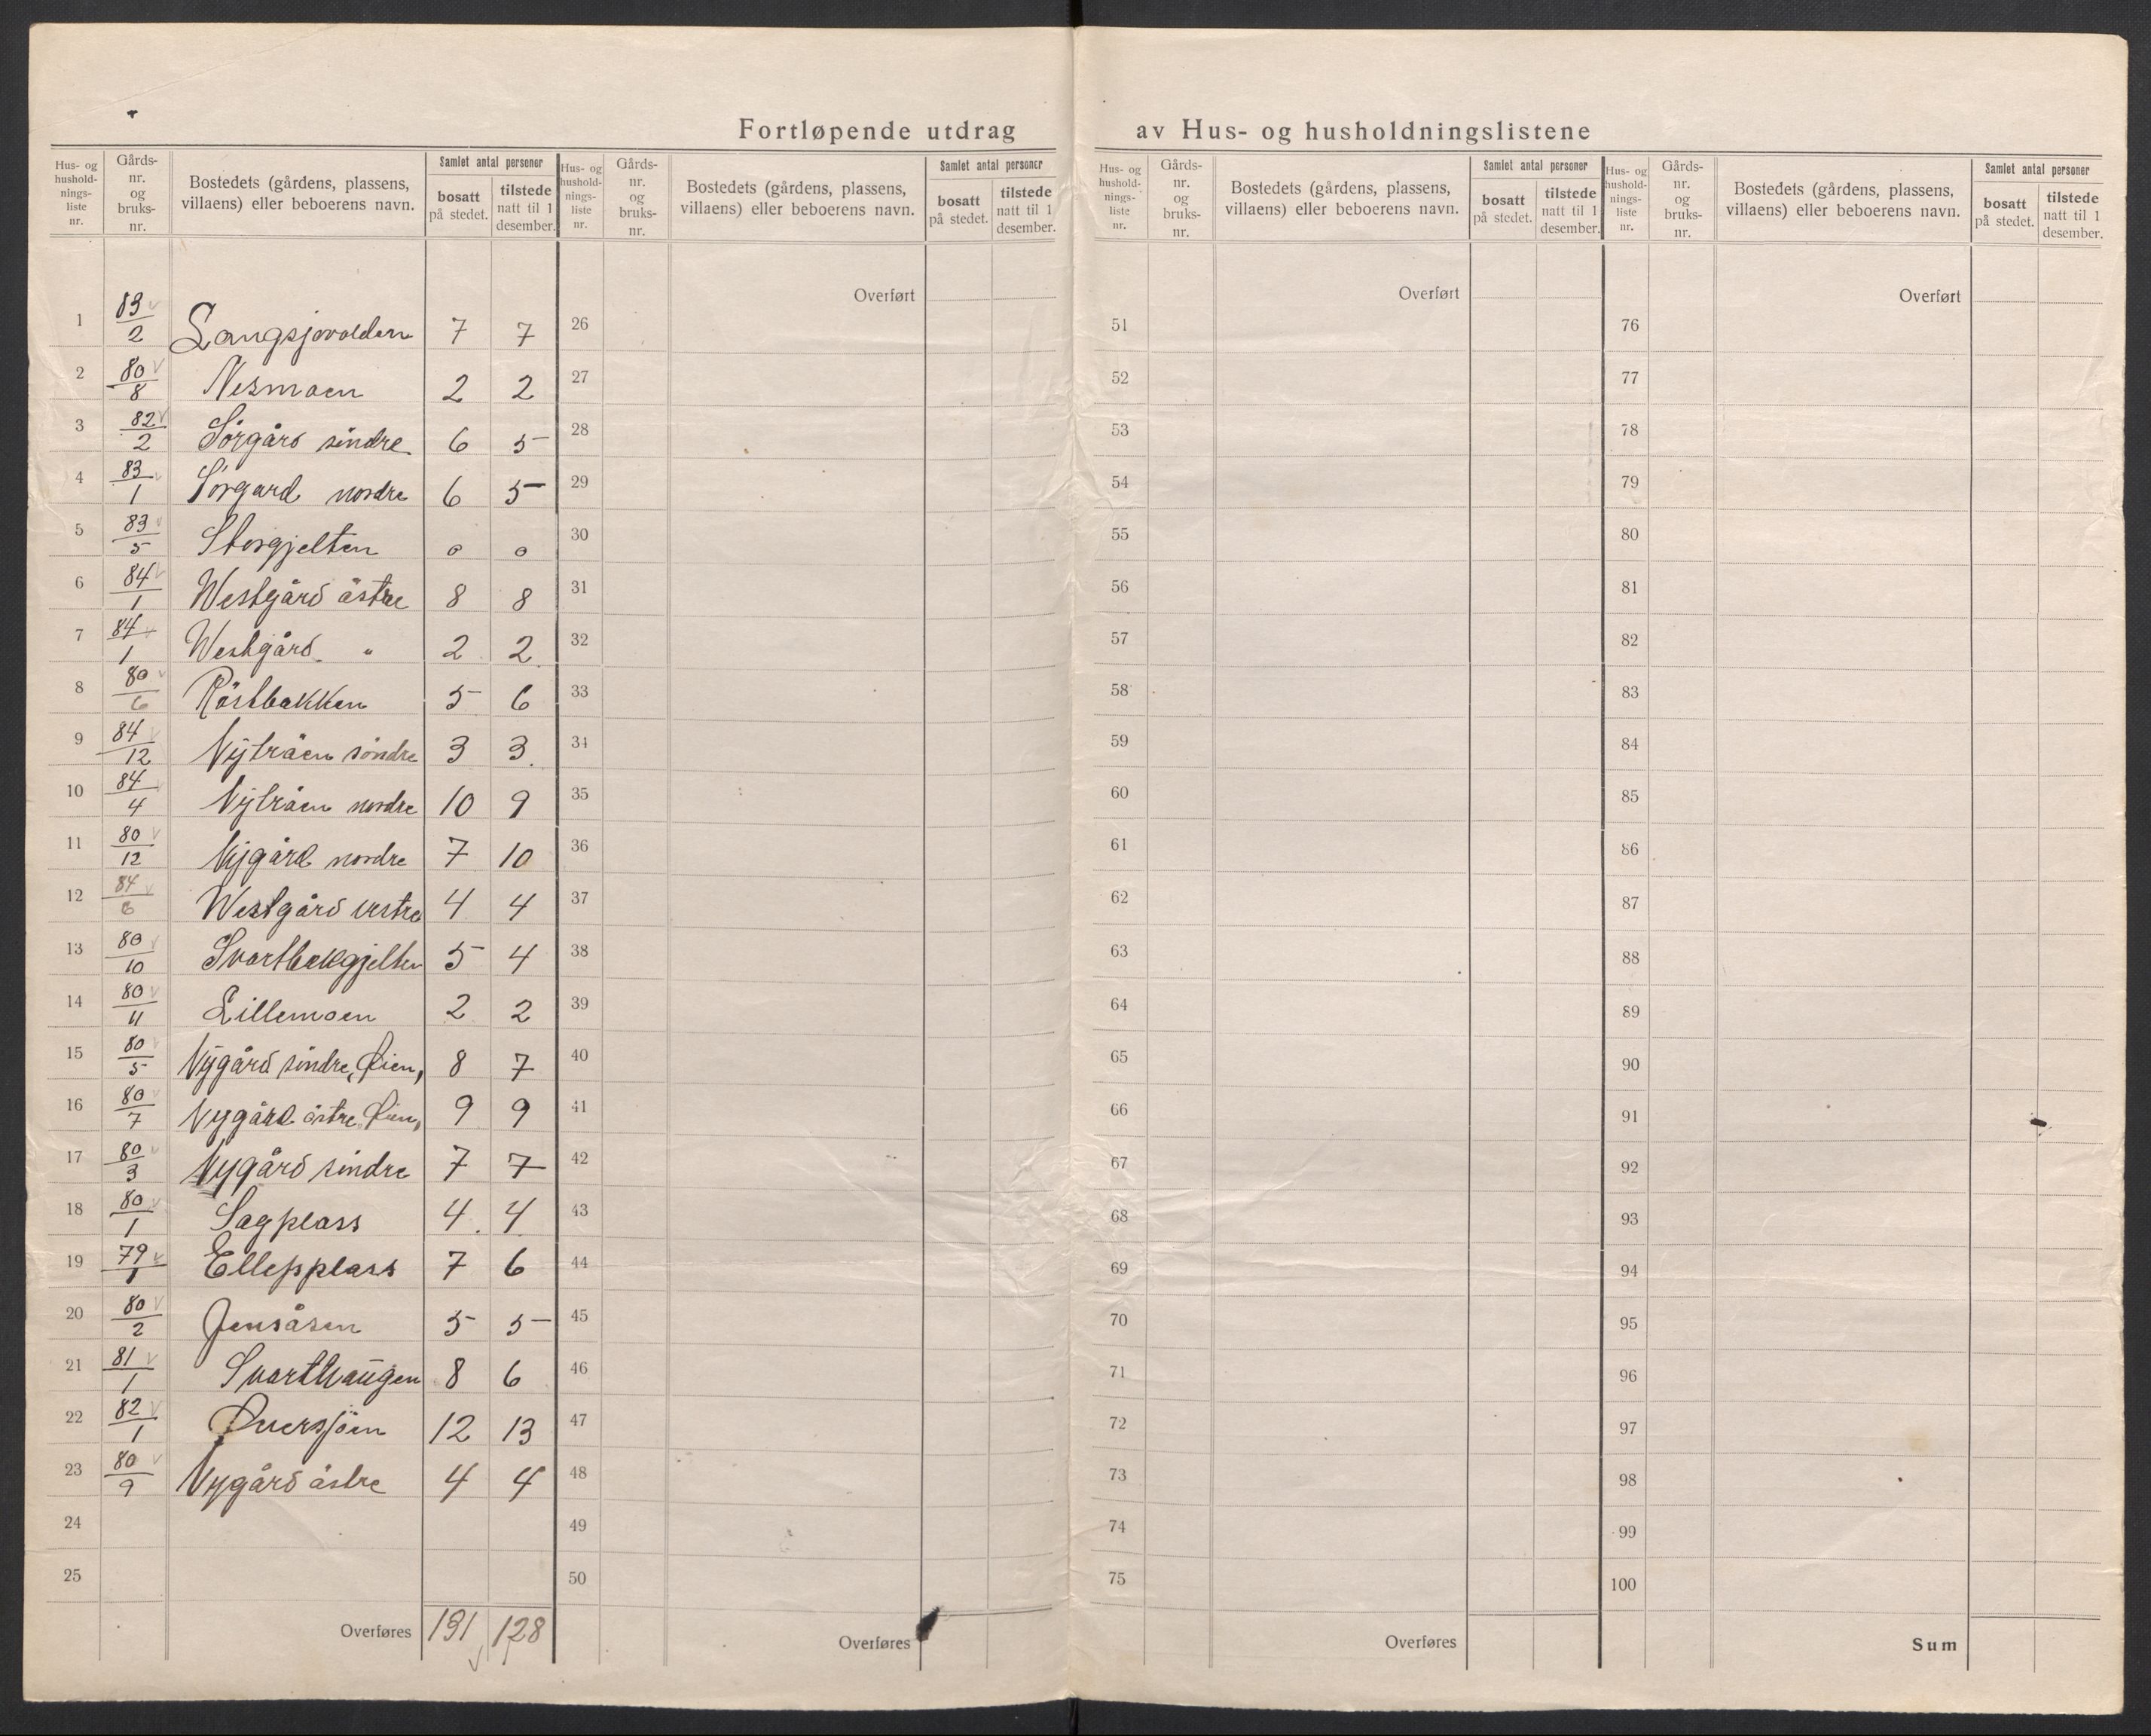 Fortløpende utdrag av Hus- og husholdningslistene
Hus- og hushold- nings- liste nr. | Gårds- nr. og bruks- nr. | Bostedets (gårdens, plassens, villaens) eller beboerens navn. | Samlet antal personer | bosatt på stedet. | tilstede natt til 1 desember.
Hus- og hushold- nings- liste nr. | Gårds- nr. og bruks- nr. | Bostedets (gårdens, plassens, villaens) eller beboerens navn. | Samlet antal personer | bosatt på stedet. | tilstede natt til 1 desember.
Hus- og hushold- nings- liste nr. | Gårds- nr. og bruks- nr. | Bostedets (gårdens, plassens, villaens) eller beboerens navn. | Samlet antal personer | bosatt på stedet. | tilstede natt til 1 desember.
Hus- og hushold- nings- liste nr. | Gårds- nr. og bruks- nr. | Bostedets (gårdens, plassens, villaens) eller beboerens navn. | Samlet antal personer | bosatt på stedet. | tilstede natt til 1 desember.
Overført Overført Overført
1 83/2 Langsjøvolden 7 7 26 51 76
2 80/8 Nesmoen 2 2 27 52 77
3 82/2 Sörgård sindre 6 5 28 53 78
4 83/1 Sörgard nordre 6 5 29 54 79
5 83/5 Storgjelten 0 0 30 55 80
6 84/1 Westgård östre 8 8 31 56 81
7 84/1 Westgård " 2 2 32 57 82
8 80/6 Röstbakken 5 6 33 58 83
9 84/12 Nytråen söndre 3 3 34 59 84
10 84/4 Nytråen nordre 10 9 35 60 85
11 80/12 Nygård nordre 7 10 36 61 86
12 84/6 Westgård vestre 4 4 37 62 87
13 80/10 Svartbekgjelten 5 4 38 63 88
14 80/11 Lillemoen 2 2 39 64 89
15 80/5 Nygård sindre, Öien, 8 7 40 65 90
16 80/7 Nygård östre Öien, 9 9 41 66 91
17 80/3 Nygård sindre 7 7 42 67 92
18 80/1 Sagplass 4 4 43 68 93
19 79/1 Ellepplass 7 6 44 69 94
20 80/2 Jensåsen 5 5 45 70 95
21 81/1 Svarthaugen 8 6 46 71 96
22 82/1 Översjöen 12 13 47 72 97
23 80/9 Nygård östre 4 4 48 73 98
24 49 74 99
25 50 75 100
Overføres 131 128 Overføres Overføres Sum